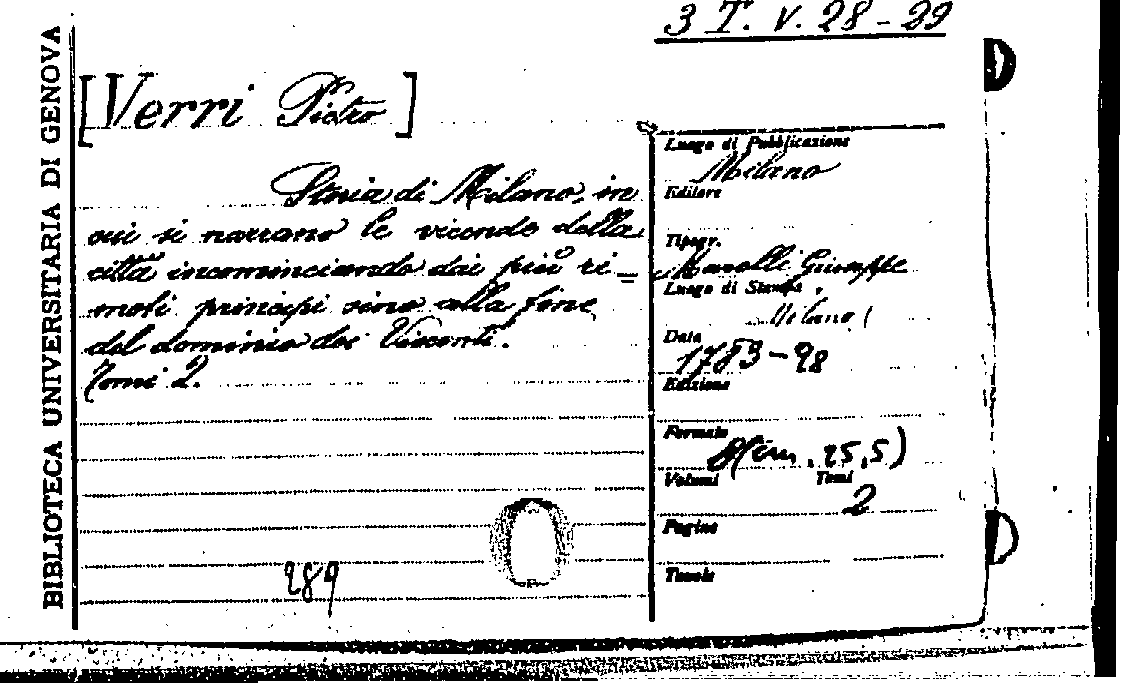 3 T. V. 28-29
BIBLIOTECA UNIVERSITARIA DI GENOVA
[Verri Pietro]
Storia di Milano, in
cui si narrano le vicende della
città incominciando dai più ri-
moti principi sino alla fine
del dominio dei Visconti.
Tomi 2.
289
Luogo di Pubblicazione
Milano
Editore
Tipogr.
Marelli Giuseppe
Luogo di Stampa
Milano
Data
1783-98
Edizione
Formato
8(cm. 25,5)
Volumi Tomi
2
Pagine
Tavole